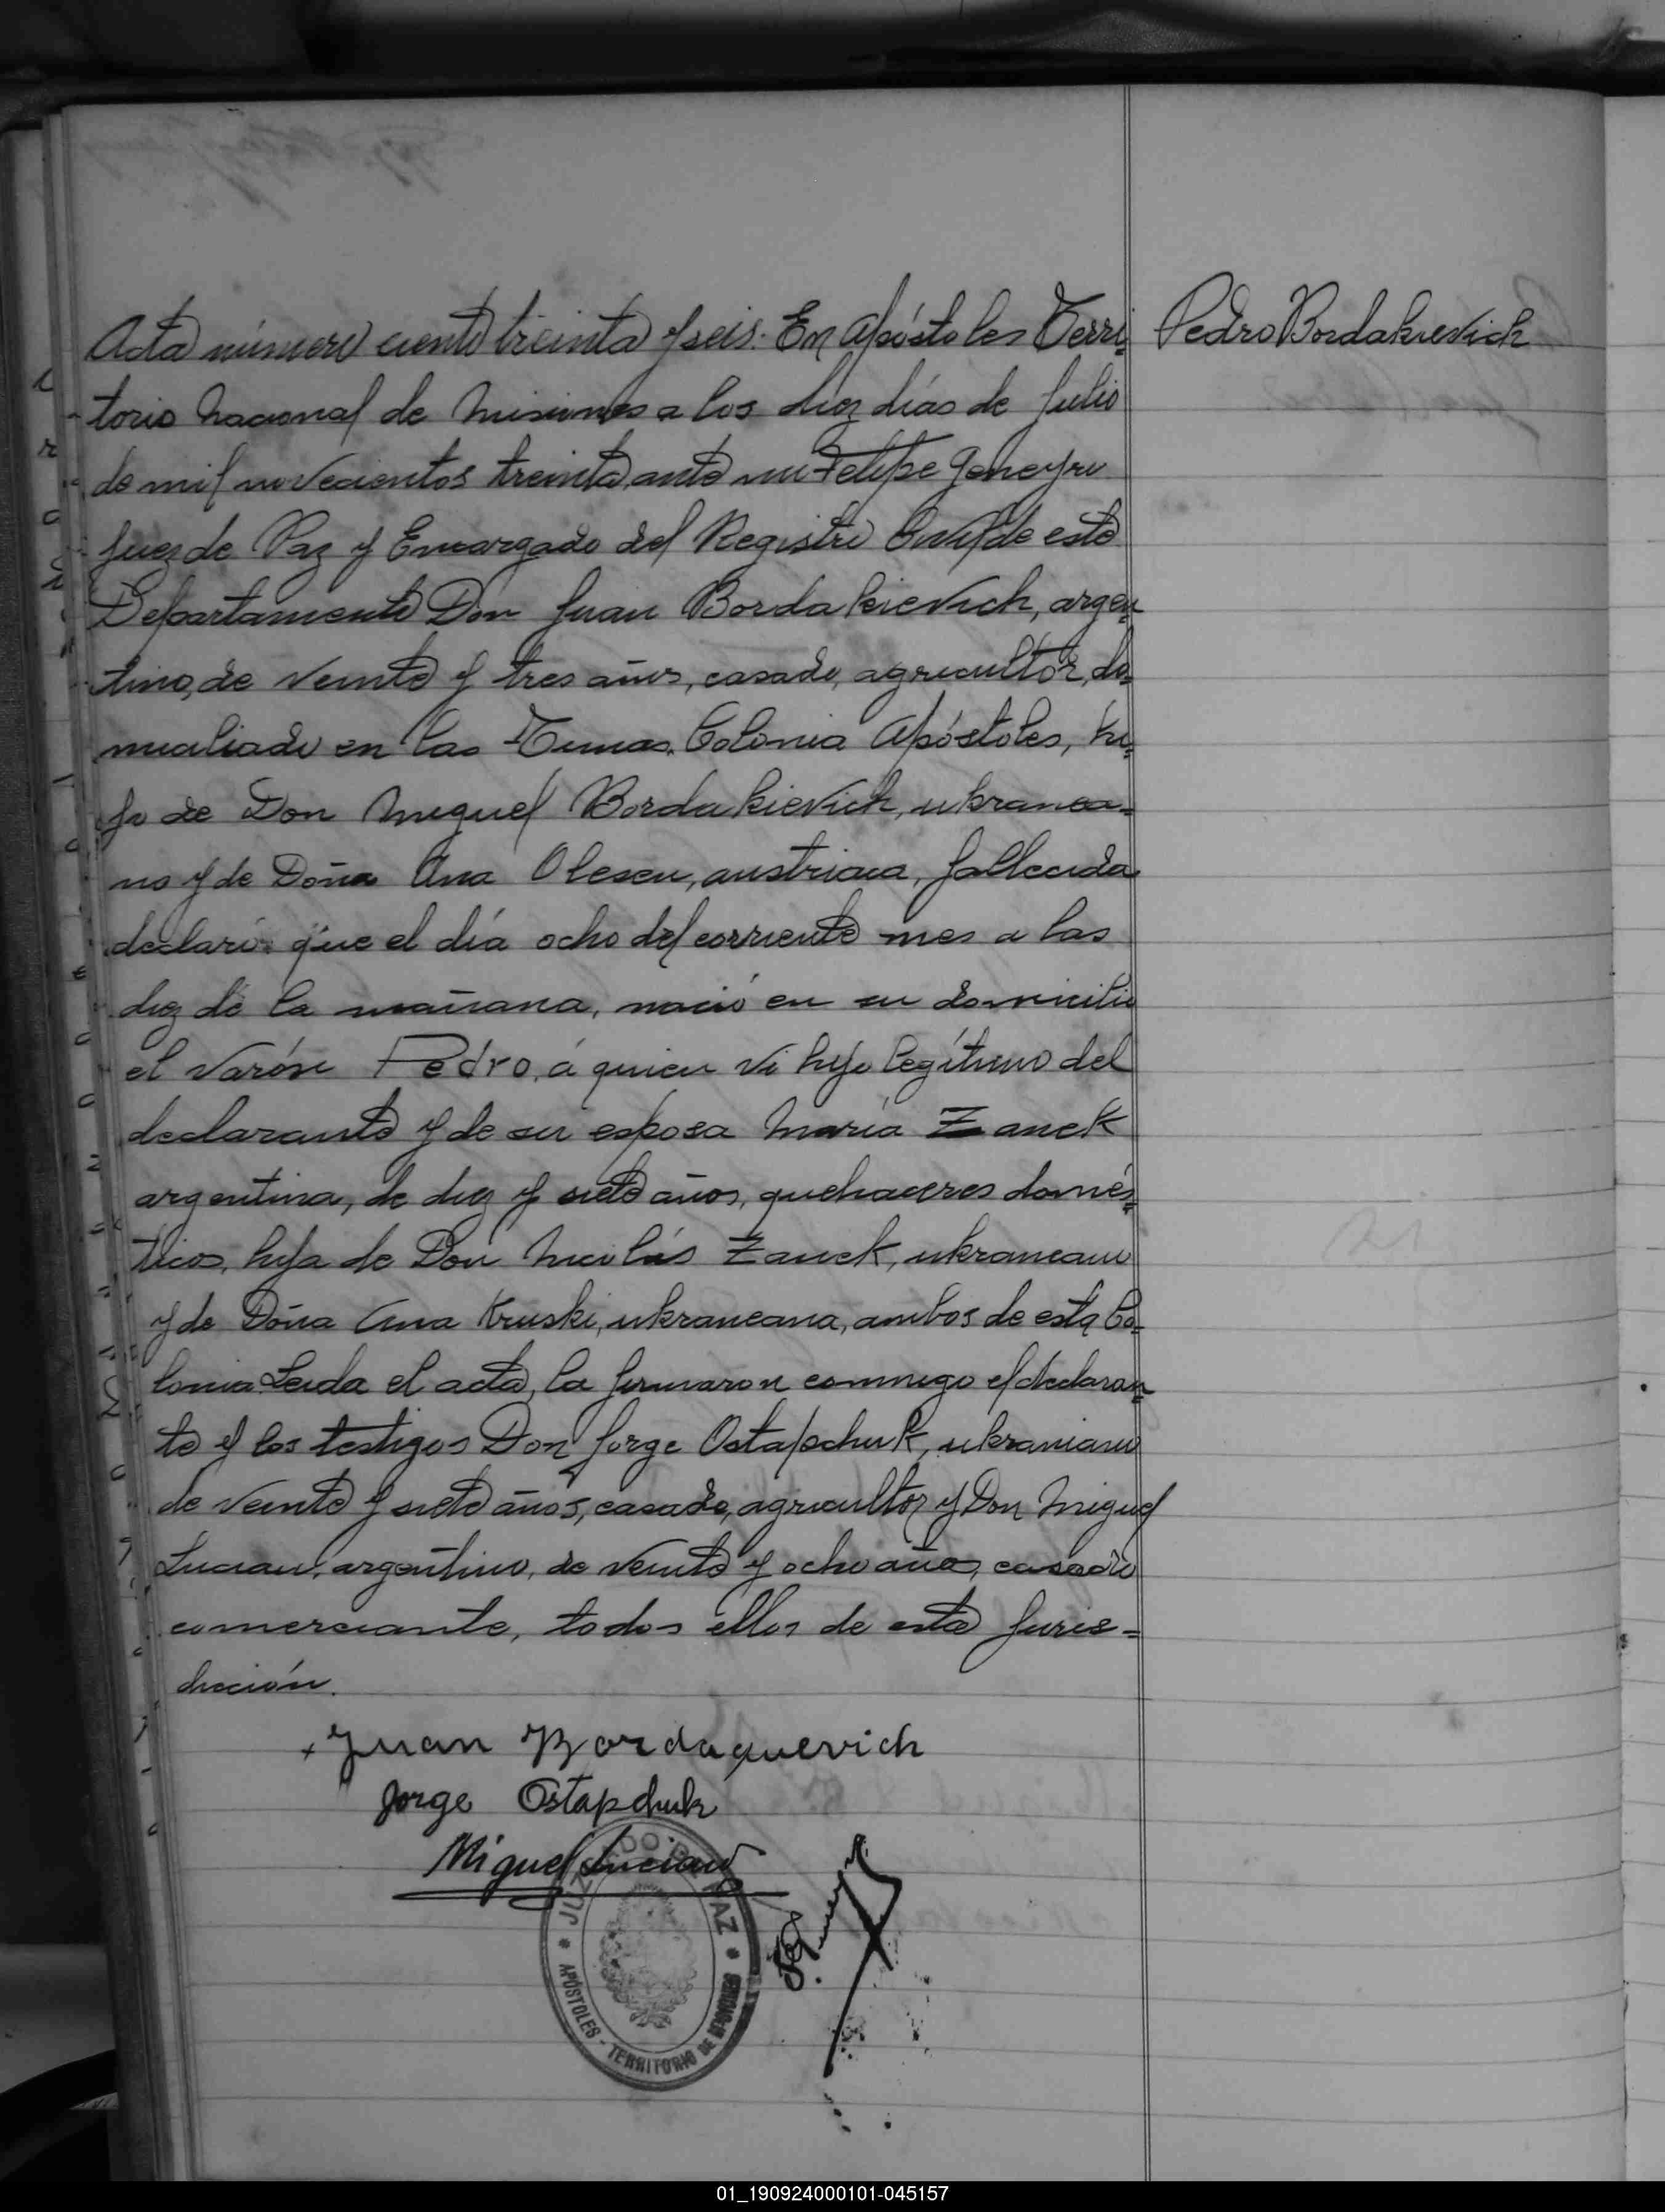 Acta número ciento treinta y seis. En Apóstoles Terri- Pedro Bordakievich
torio Nacional de Misiones a los diez días de Julio
de mil novecientos treinta, ante mi Felipe Geneyro
Juez de Paz y Encargado del Registro Civil de este
Departamento Don Juan Bordakievich, argen-
tino, de veinte y tres años, casado, agricultor, do-
miciliado en las Tunas. Colonia Apóstoles, hi-
jo de Don Miguel Bordakievich, ukranea-
no y de Doña Ana Olesen, austriaca, fallecida
declaró: que el día ocho del corriente mes a las
diez de la mañana, nació en su domicilio
el varón Pedro, á quien vi hijo legítimo del
declarante y de su esposa María Zanek
argentina, de diez y siete años, quehaceres domés-
ticos, hija de Don Nicolás Zanek, ukraneano
y de Doña Ana Kruski, ukraneana, ambos de esta Co-
lonia Leida el acta, la firmaron conmigo el declaran-
te y los testigos Don Jorge Ostapchuk, ukraniano
de veinte y siete años, casado, agricultor y Don Miguel
Luciau, argentino, de veinte y ocho años, casado
comerciante, todos ellos de esta Juris-
dicción.
x Juan Bordaquevich
Jorge Ostapchuk
Miguel
JUZGADO DE PAZ
APÓSTOLES - TERRITORIO DE MISIONES
01_190924000101-045157